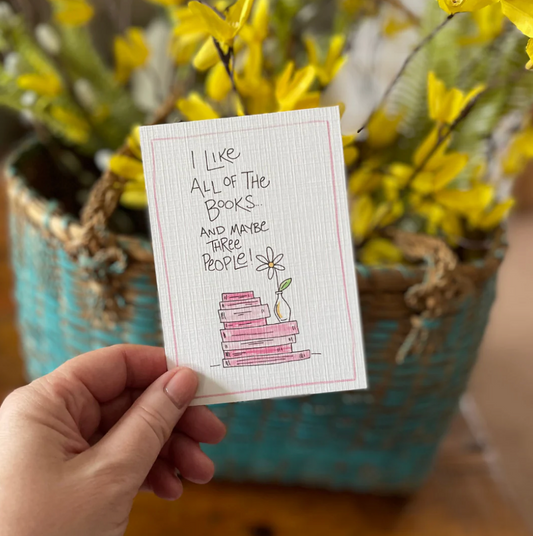 I LIKE
ALL OF THE
BOOKS...
AND MAYBE
THREE
PEOPLE!